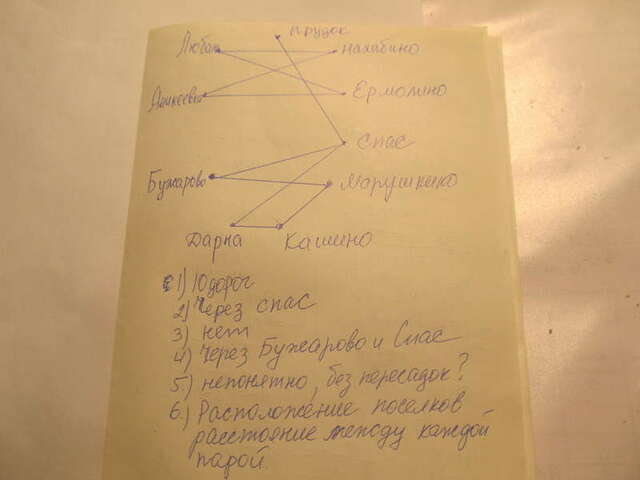 Прудок
Любань Нахабино
Аникеевка Ермолино
Спас
Бужарово Марушкино
Дарна Кашино
1) 10 дорог
2) Через Спас
3) нет
4) Через Бужарово и Спас
5.) непонятно, без пересадок?
6.) Расположение поселков
расстояние между каждой
парой.